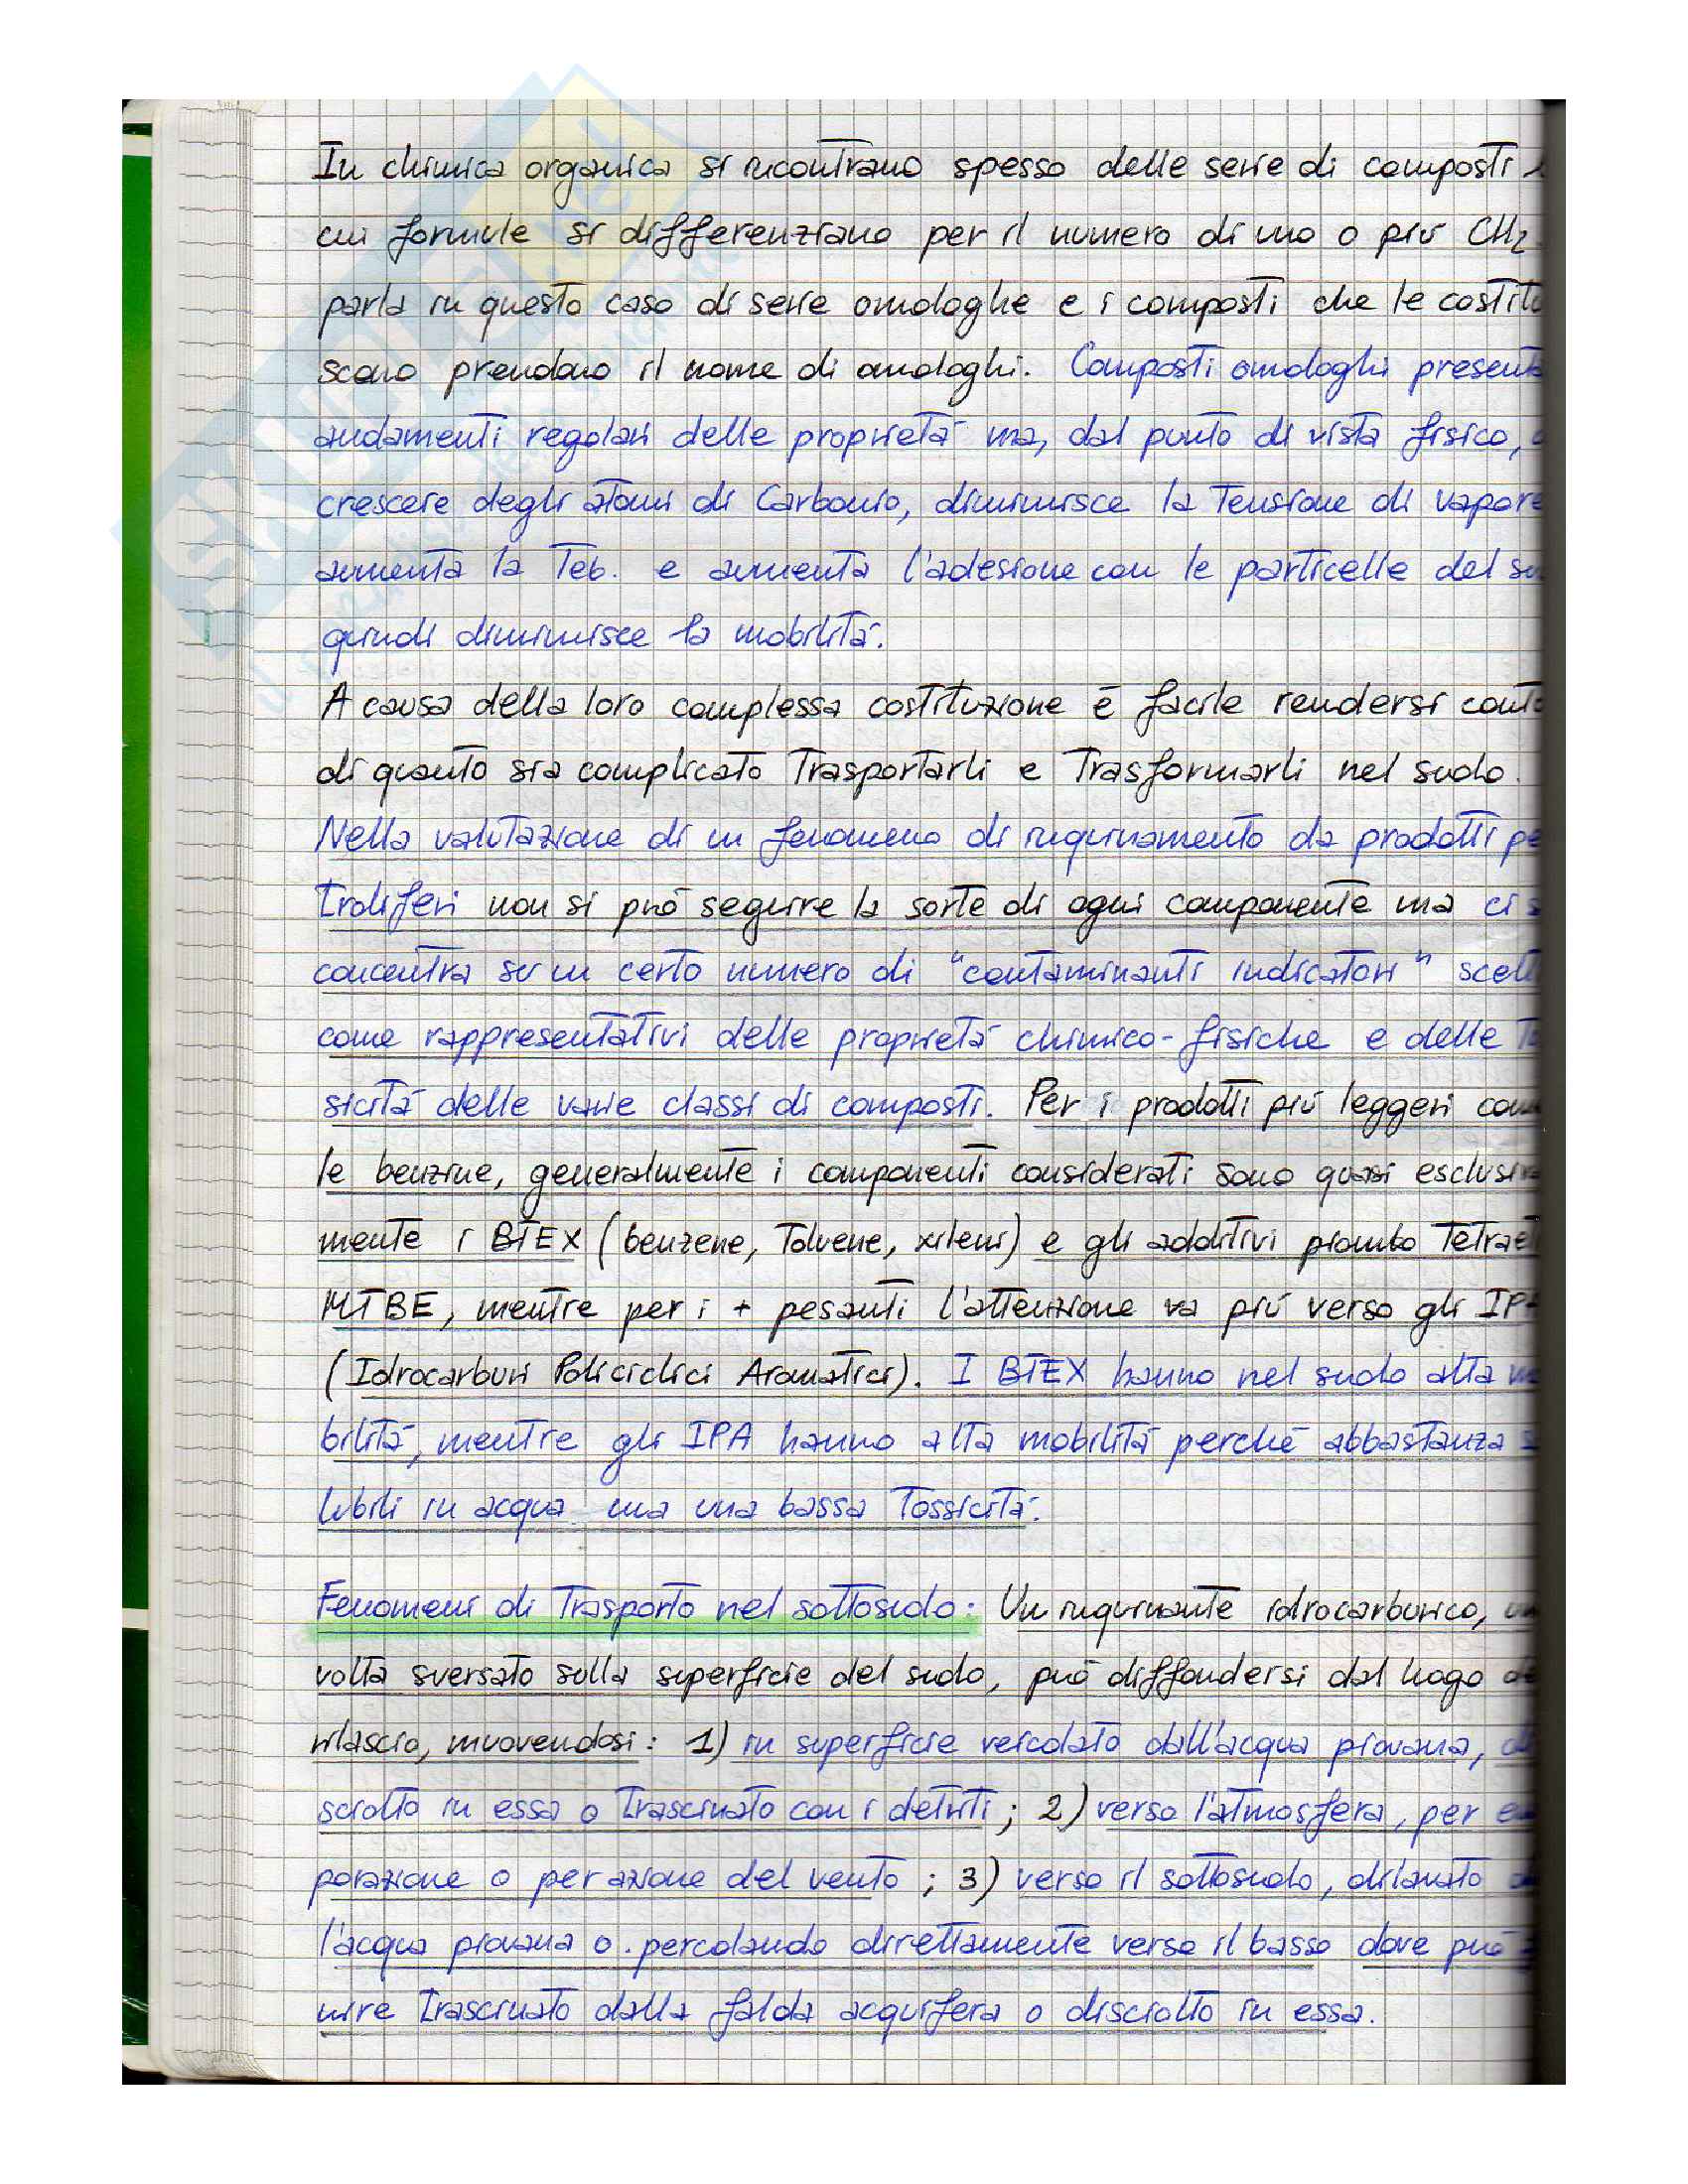 In chimica organica si incontrano spesso delle serie di composti
cui formule si differenziano per il numero di uno o più CH2
parla in questo caso di serie omologhe e i composti che le costitu
scono prendono il nome di omologhi. Composti omologhi presenta
andamenti regolari delle proprietà ma, dal punto di vista fisico,
crescere degli atomi di Carbonio, diminuisce la Tensione di vapore
aumenta la Teb. e aumenta l'adesione con le particelle del su
quindi diminuisce la mobilità.
A causa della loro complessa costituzione è facile rendersi conto
di quanto sia complicato Trasportarli e Trasformarli nel suolo.
Nella valutazione di un fenomeno di inquinamento da prodotti pe
troliferi non si può seguire la sorte di ogni componente ma ci s
concentra su un certo numero di "contaminanti indicatori" scelt
come rappresentativi delle proprietà chimico-fisiche e delle To
sicità delle varie classi di composti. Per i prodotti più leggeri com
le benzine, generalmente i componenti considerati sono quasi esclusiva
mente i BTEX (benzene, Toluene, xileni) e gli additivi piombo Tetraet
MTBE, mentre per i + pesanti l'attenzione va più verso gli IPA
(Idrocarburi Policiclici Aromatici). I BTEX hanno nel suolo alta mo
bilità, mentre gli IPA hanno alta mobilità perché abbastanza s
lubili in acqua ma una bassa Tossicità.
Fenomeni di Trasporto nel sottosuolo: Un inquinante idrocarburico, un
volta sversato sulla superficie del suolo, può diffondersi dal luogo de
rilascio, muovendosi: 1) in superficie veicolato dall'acqua piovana, di
sciolto in essa o Trascinato con i detriti; 2) verso l'atmosfera, per eva
porazione o per azione del vento; 3) verso il sottosuolo, dilavato da
l'acqua piovana o percolando direttamente verso il basso dove può
nire Trascinato dalla falda acquifera o disciolto in essa.